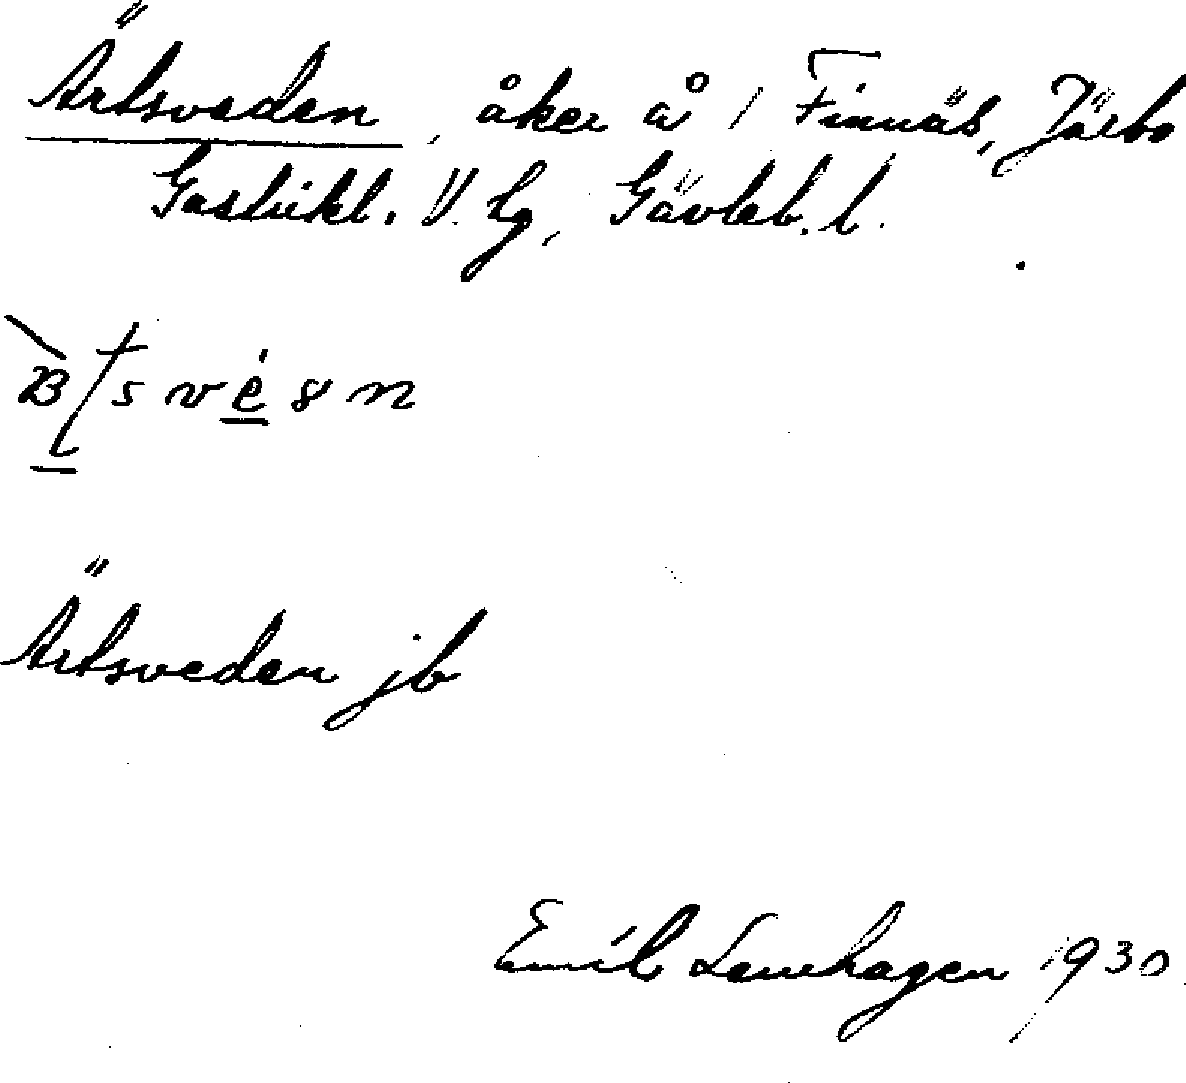 Ärtsveden, åker å 1 Finnäs, Järbo
Gästrikl. V. lg, Gävleb. l.
Ärtsveden jb
Emil Lenehagen 1930